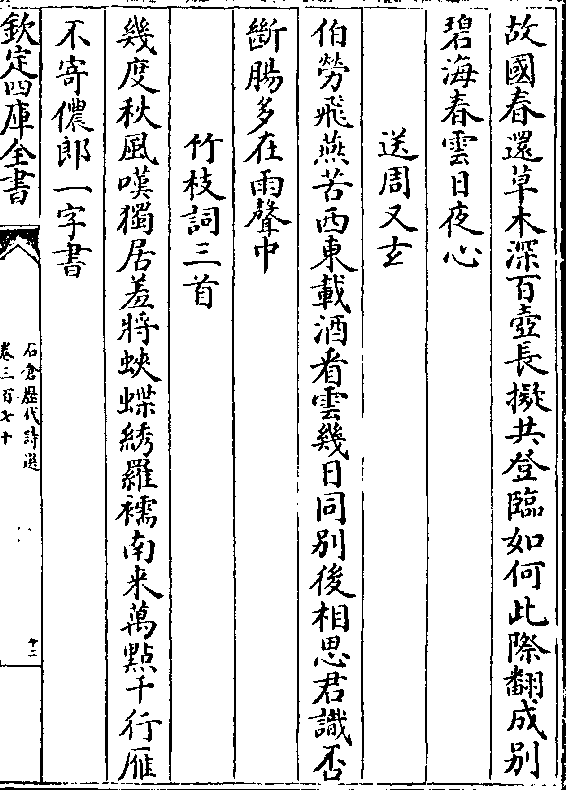 故國春還草木深百壺長擬共登臨如何此際翻成别
碧海春雲日夜心
送周又玄
伯勞飛燕苦西東載酒看雲幾日同别後相思君識否
斷腸多在雨聲中
竹枝詞三首
幾度秋風嘆獨居羞將蛺蝶綉羅襦南来萬點千行雁
不寄儂郎一字書
欽定四庫全書
石倉歷代詩選
卷三百七十
十二